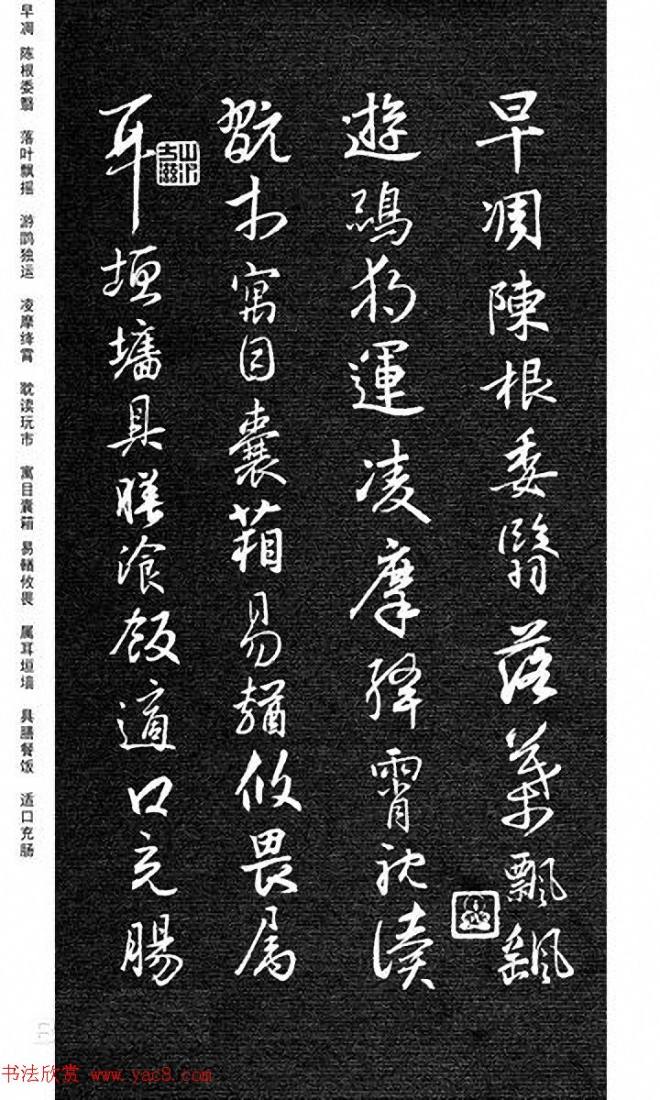 早凋陳根委翳落葉飄飖
遊鵾獨運凌摩絳霄耽讀
翫市寓目囊葙易輶攸畏属
耳垣墻具膳飡飯適口充腸
早凋 陈根委翳 落叶飘摇 游鹍独运 凌摩绛霄 耽读玩市 寓目囊箱 易輶攸畏 属耳垣墙 具膳餐饭 适口充肠
书法欣赏 www.yac8.com